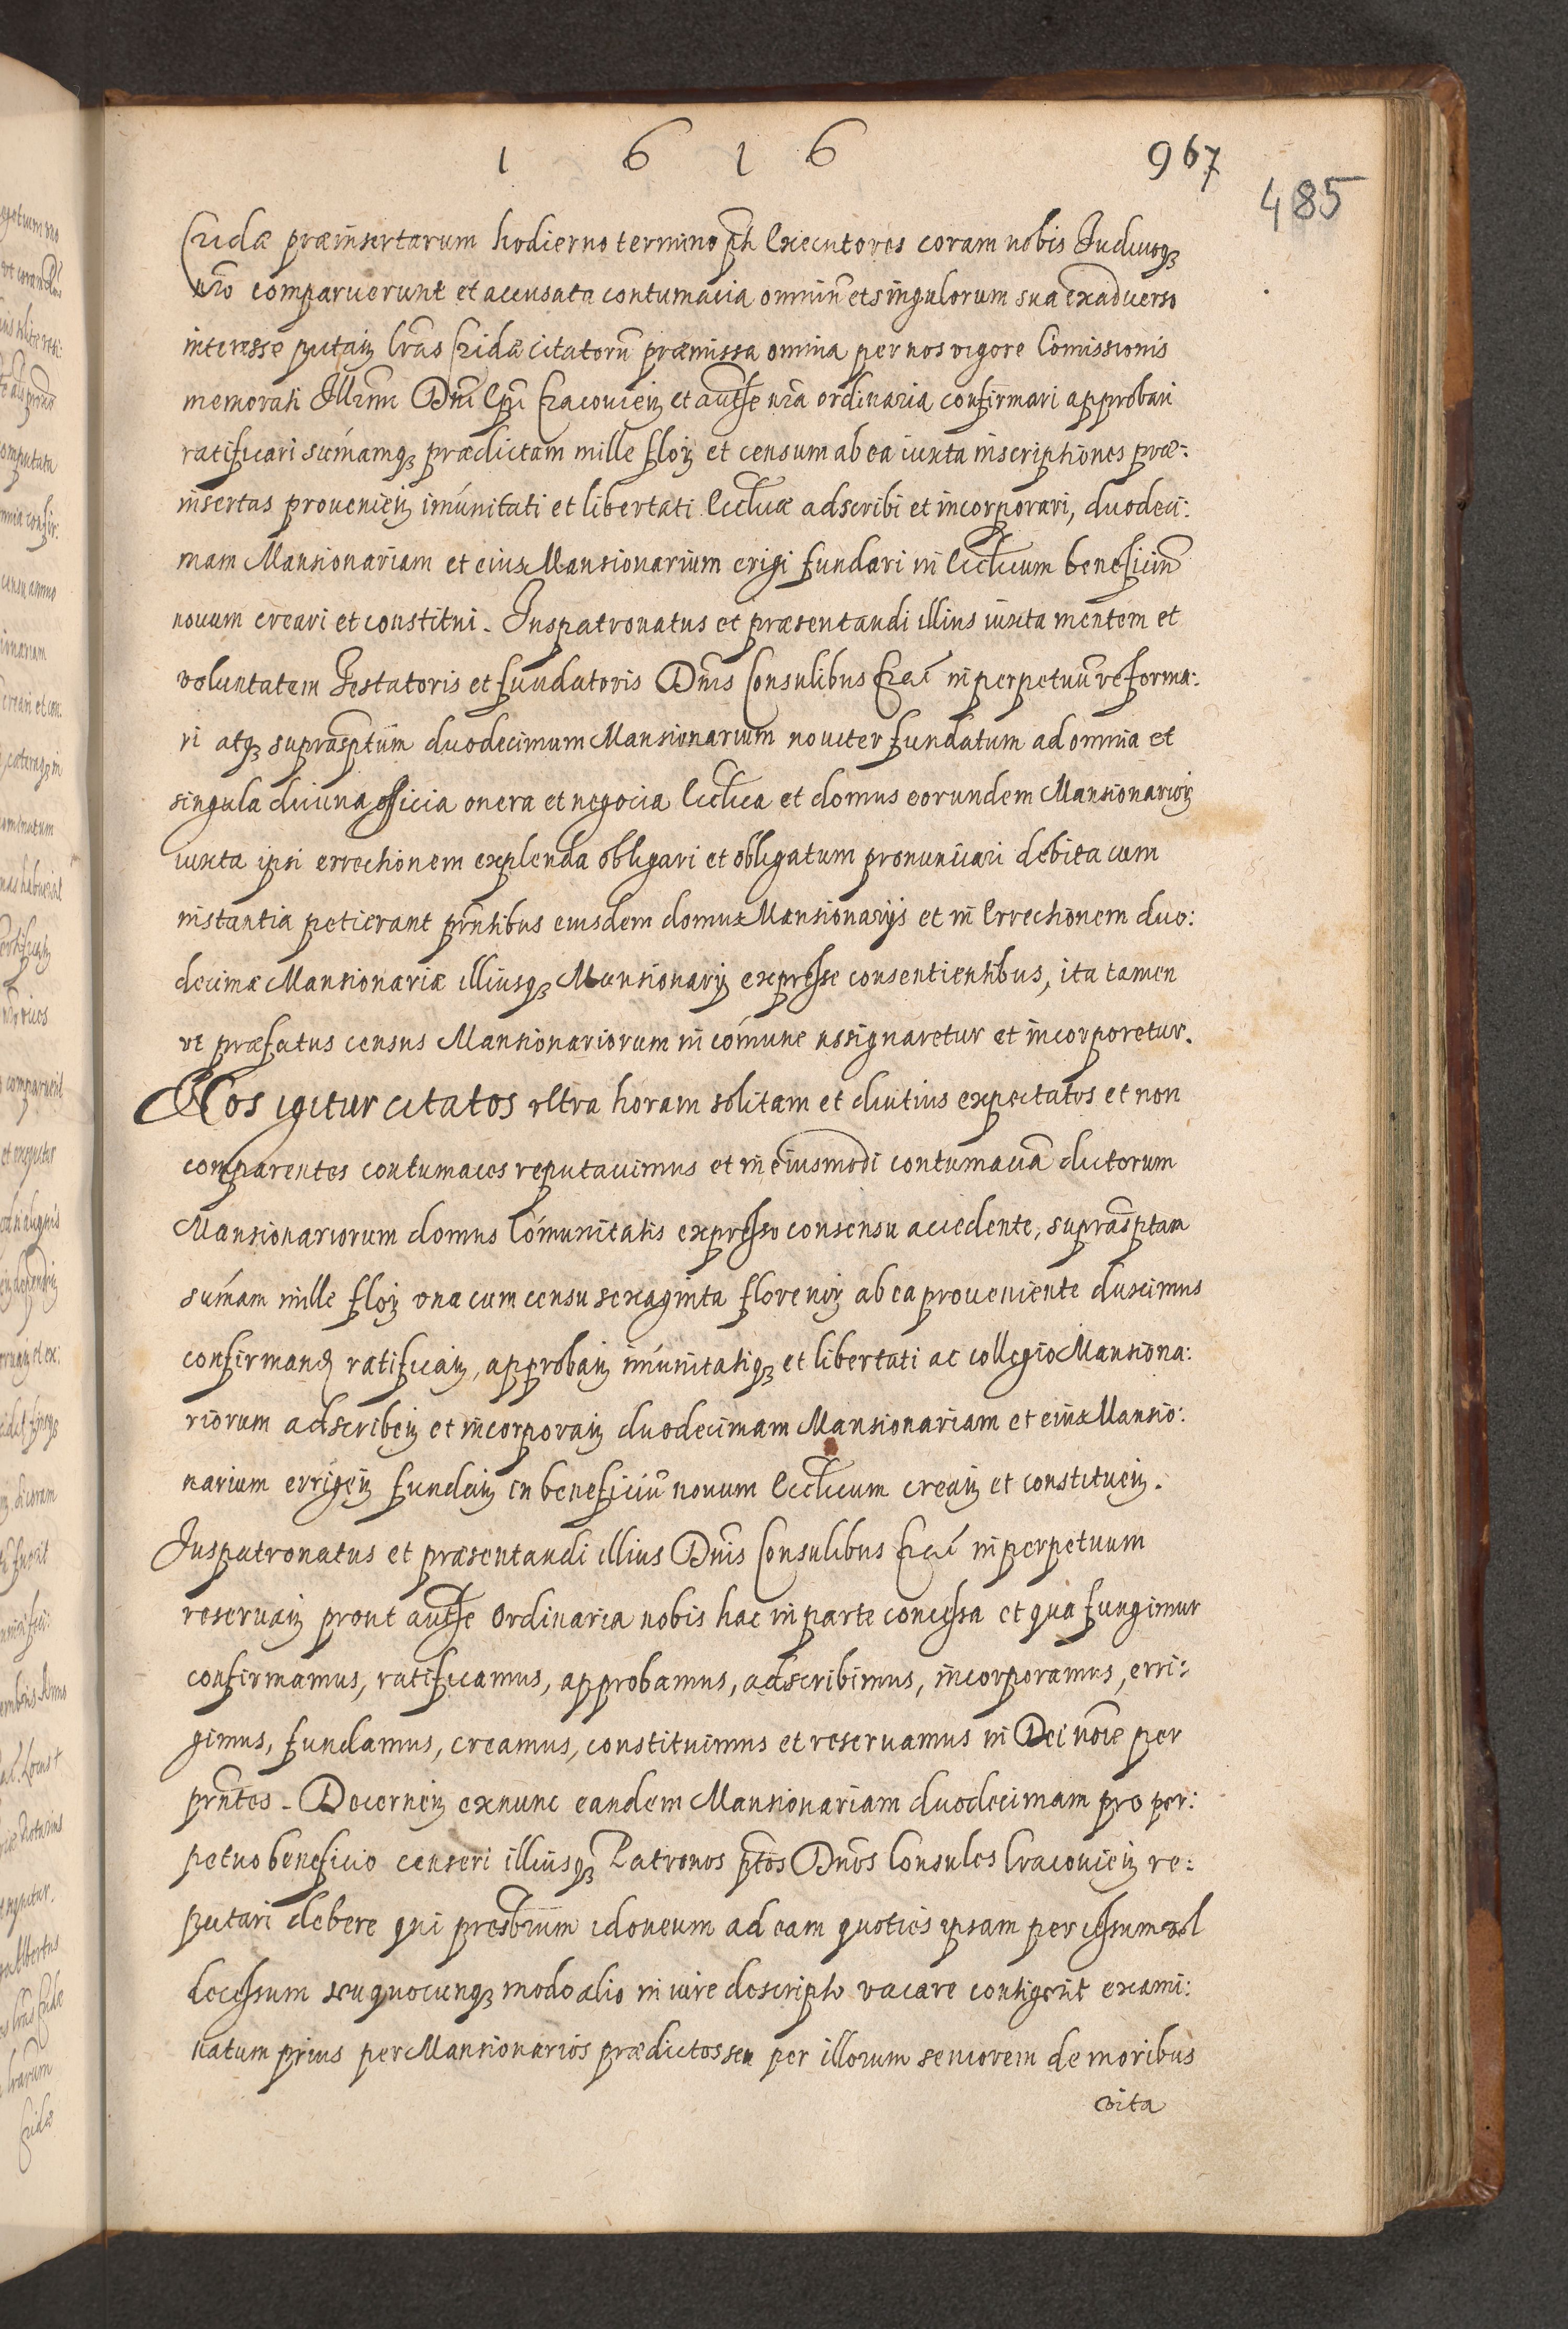 1 6 1 6
967
485
Cridæ præinsertarum hodierno termino pti Executores coram nobis Iuditioq3
nro comparuerunt et accusata contumacia omniũ et singulorum sua exaduerso
interesse putan lras Cridæ citatorũ præmissa omnia per nos vigore Comissionis
memorati Illmi Dni Epi Cracouien et authte nra ordinaria confirmari approbari
ratificari sumamq3 prædictam mille flor et censum ab ea iuxta inscriptiones præ:
insertas prouenien imunitati et libertati Eccliæ adscribi et incorporari, duodeci:
mam Mansionariam et eius Mansionarium erigi fundari in Eccticum beneficiũ
nouum creari et constitui. Iuspatronatus et præsentandi illius iuxta mentem et
voluntatem Testatoris et fundatoris Dnis Consulibus Crac in perpetuũ reforma:
ri atq3 suprascptum duodecimum Mansionarium nouiter fundatum ad omnia et
singula diuina officia onera et negocia Ecclica et domus eorundem Mansionarior
iuxta ipsi errectionem explenda obligari et obligatum pronunciari debita cum
instantia petierant prntibus eiusdem domus Mansionarijs et in Errectionem duo:
decimæ Mansionariæ illiusq3 Mansionarij expresse consentientibus, ita tamen
vt præfatus census Mansionariorum in comune assignaretur et incorporetur.
Nos igitur citatos vltra horam solitam et diutius expectatos et non
comparentes contumaces reputauimus et in eiusmodi contumaciã dictorum
Mansionariorum domus Comunitatis expresso consensu accedente, suprascptam
sumam mille flor vna cum censu sexaginta florenor ab ea proueniente duximus
confirmand ratifican, approban imunitatiq3 et libertati ac collegio Mansiona:
riorum adscriben et incorporan duodecimam Mansionariam et eius Mansio:
narium errigen fundan in beneficiũ nouum Eccticum crean et constituen.
Iuspatronatus et præsentandi illius Dnis Consulibus Crac in perpetuum
reseruan prout authte Ordinaria nobis hac in parte concessa et qua fungimur
confirmamus, ratificamus, approbamus, adscribimus, incorporamus, erri:
gimus, fundamus, creamus, constituimus et reseruamus in Dei noie per
prntes. Decernen exnunc eandem Mansionariam duodecimam pro per:
petuo beneficio censeri illiusq3 Patronos ptos Dnos Consules Cracouien re:
putari debere qui presbrum idoneum ad eam quoties ipsam per cessum vel
decessum seu quocunq3 modo alio in iure descripto vacare contigerit exami:
natum prius per Mansionarios prædictos seu per illorum seniorem de moribus
vita